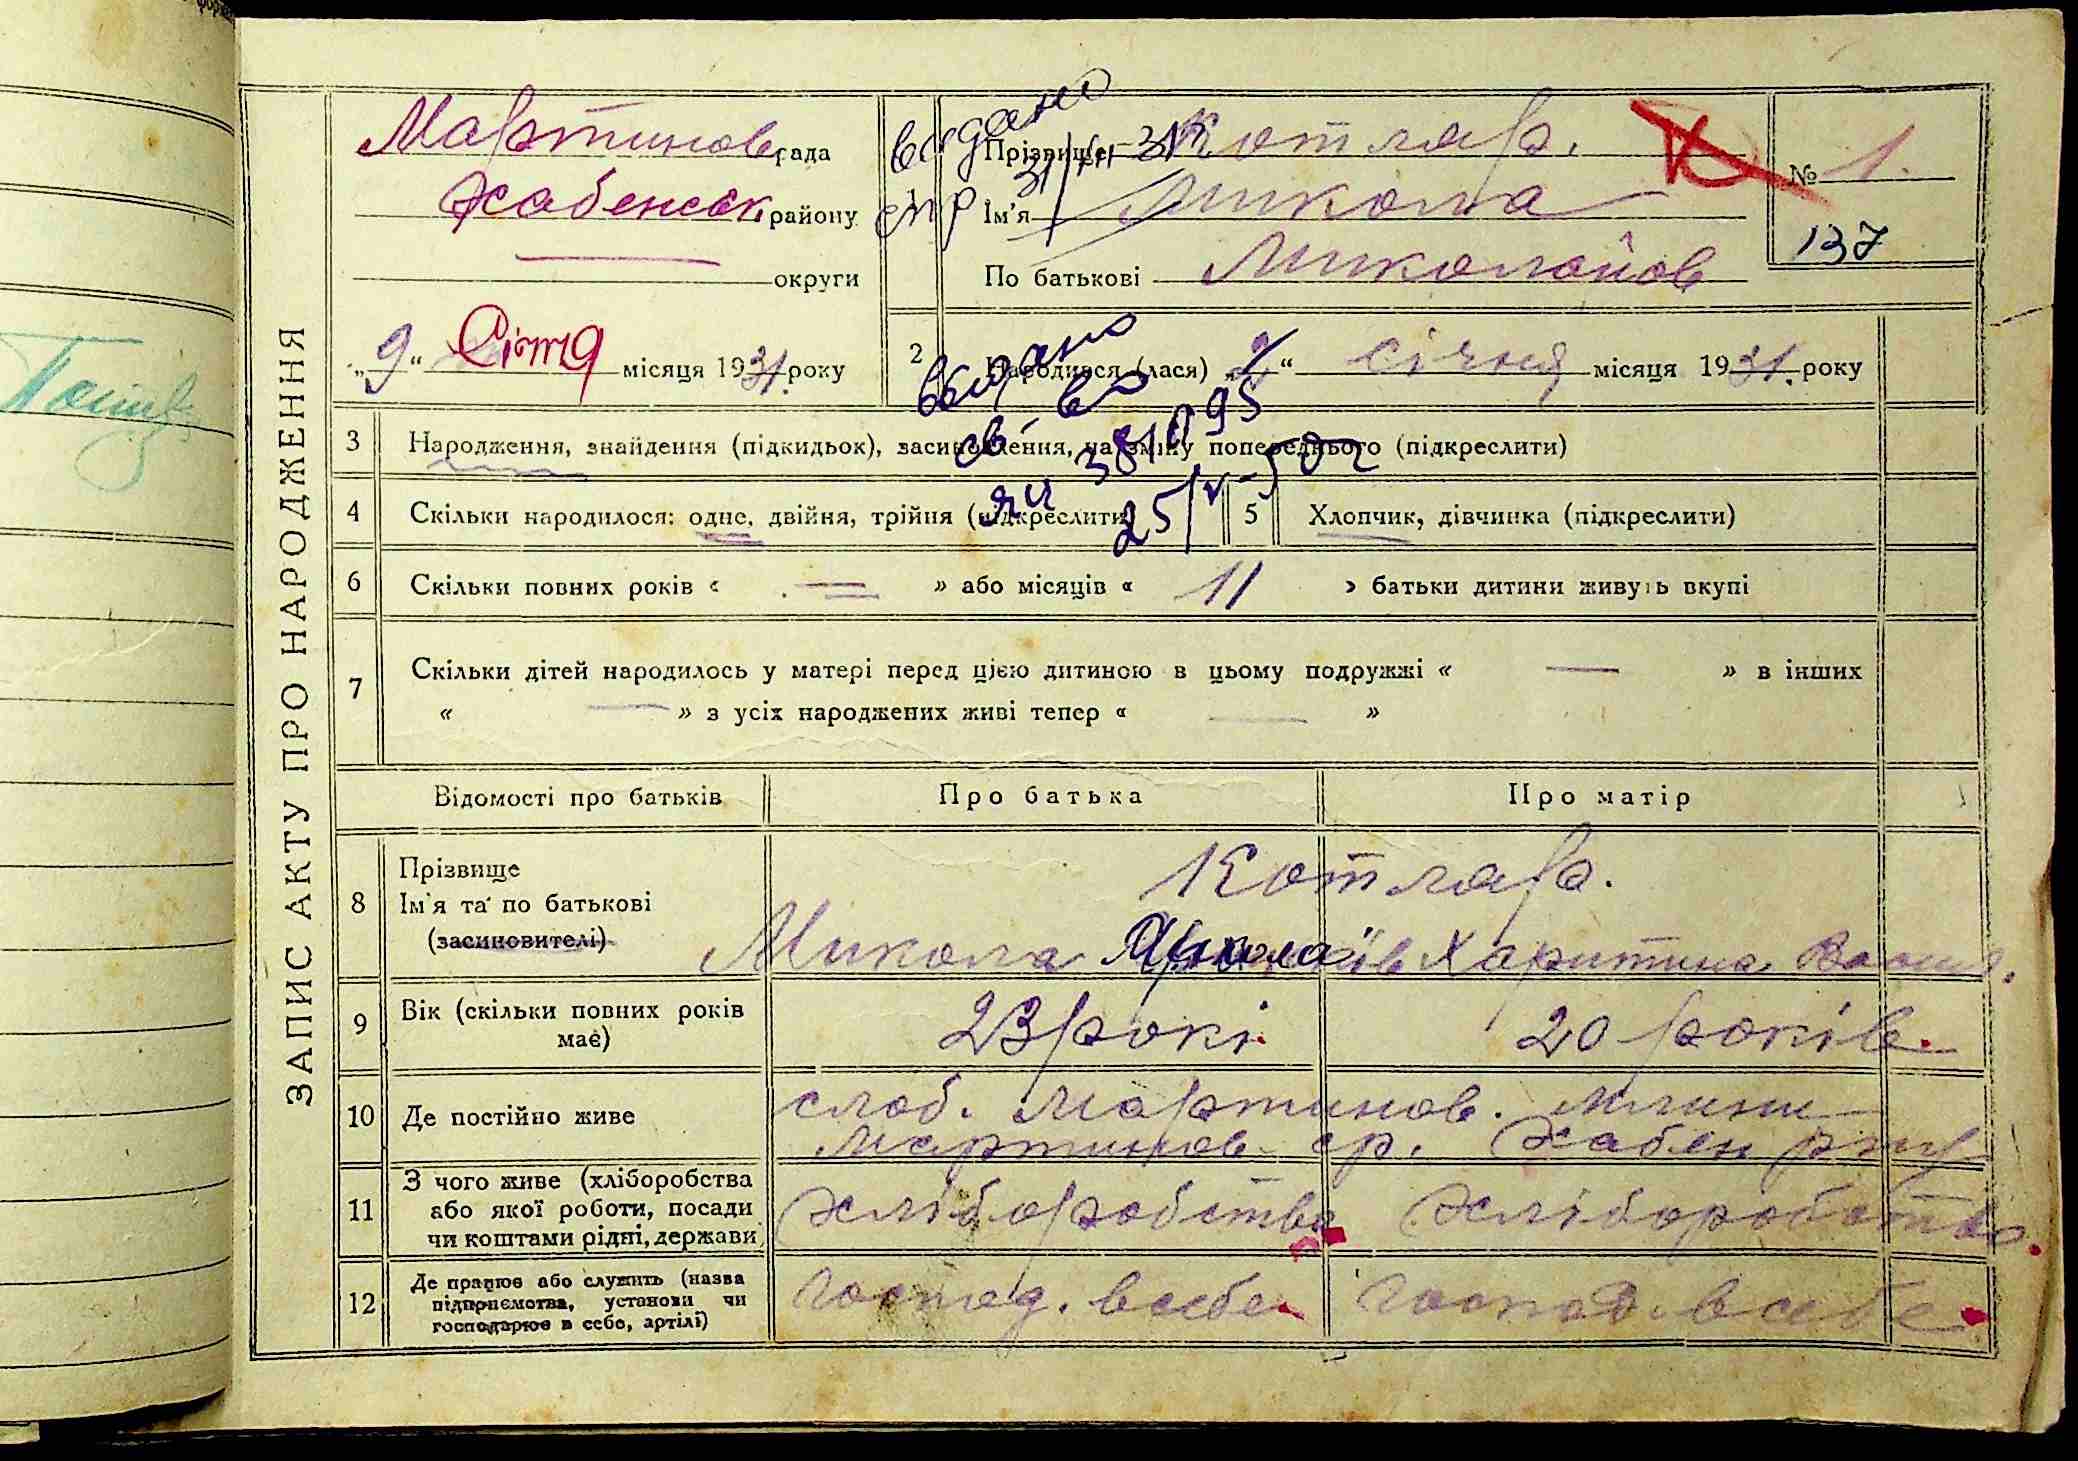 ЗАПИС АКТУ ПРО НАРОДЖЕННЯ
Мартинов. рада
Хабенськ. району
округи
„9“ Січня місяця 1931. року
видано
31/III-31
спр
Прізвище Котляр.
Ім'я Микола
По батькові Миколайов
№ 1.
137
2 Народився (лася) „ “ січня місяця 1931. року
выдано
св-во
яч 381095
25/V-50г
3 Народження, знайдення (підкидьок), засиновлення, на зміну попереднього (підкреслити)
4 Скільки народилося: одне, двійня, трійня (підкреслити)
5 Хлопчик, дівчинка (підкреслити)
6 Скільки повних років « — » або місяців « 11 » батьки дитини живуть вкупі
7 Скільки дітей народилось у матері перед цією дитиною в цьому подружжі « — » в інших
« — » з усіх народжених живі тепер « — »
Відомості про батьків Про батька Про матір
8 Прізвище
Ім'я та по батькові
(засиновителі)
Котляр.
Микола Харитина
9 Вік (скільки повних років має)
23 рокі. 20 років.
10 Де постійно живе
слоб. Мартинов. Млини
Мартинов ср. Хабен р-ну
11 З чого живе (хліборобства
або якої роботи, посади
чи коштами рідні, держави)
Хліборобства Хліборобства
12 Де працює або служить (назва
підприємства, установи чи
господарює в себе, артілі)
господ. в себе господ. в себе